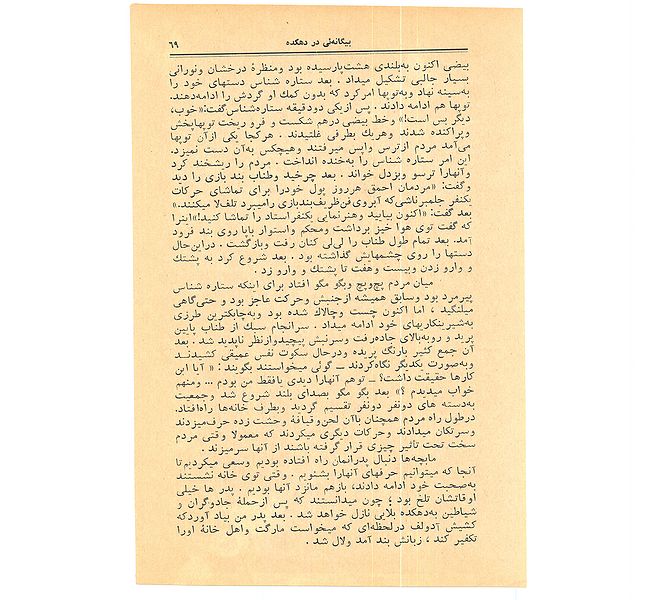 بیگانه‌ئی در دهکده ۶۹
بیضی اکنون به‌بلندی هشت‌پارسیده بود ومنظرهٔ درخشان ونورانی
بسیار جالبی تشکیل میداد . بعد ستاره شناس دستهای خود را
به‌سینه نهاد وبه‌توپها امرکرد که بدون کمك او گردش را ادامه‌دهند.
توپها هم ادامه دادند . پس ازیکی دودقیقه ستاره‌شناس‌گفت:«خوب،
دیگر بس است!» وخط بیضی درهم شکست و فرو ریخت توپهاپخش
وپراکنده شدند وهریك بطرفی غلتیدند . هرکجا یکی ازآن توپها
می‌آمد مردم ازترس واپس میرفتند وهیچکس به‌آن دست نمیزد.
این امر ستاره شناس را به‌خنده انداخت . مردم را ریشخند کرد
وآنهارا ترسو وبزدل خواند . بعد چرخید وطناب بند بازی را دید
وگفت: «مردمان احمق هرروز پول خودرا برای تماشای حرکات
یکنفر جلمبرناشی‌که آبروی فن‌ظریف‌بندبازی رامیبرد تلف‌لا میکنند.»
بعد گفت: «اکنون بیایید وهنرنمایی یکنفراستاد را تماشا کنید!»اینرا
که گفت توی هوا خیز برداشت ومحکم واستوار باپا روی بند فرود
آمد. بعد تمام طول طناب را لی‌لی کنان رفت وبازگشت . دراین‌حال
دستها را روی چشمهایش گذاشته بود . بعد شروع کرد به پشتك
و وارو زدن وبیست وهفت تا پشتك و وارو زد .
میان مردم پچ‌وپچ وبگو مگو افتاد برای اینکه ستاره شناس
پیرمرد بود وسابق همیشه ازجنبش وحرکت عاجز بود و حتی‌گاهی
میلنگید ، اما اکنون چست وچالاك شده بود وبه‌چابکترین طرزی
به‌شیرینکاریهای خود ادامه میداد . سرانجام سبك از طناب پایین
پرید و روبه‌بالای جاده‌رفت وسرنبش پیچیدوازنظر ناپدید شد . بعد
آن جمع کثیر بارنگ پریده ودرحال سکوت نفس عمیقی کشیدنـد
وبه‌صورت یکدیگر نگاه‌کردند ــ گوئی میخواستند بگویند : « آیا این
کارها حقیقت داشت؟ ــ توهم آنهارا دیدی یافقط من بودم ... ومنهم
خواب میدیدم ؟» بعد بگو مگو بصدای بلند شروع شد وجمعیت
به‌دسته های دونفر دونفر تقسیم گردید وبطرف خانه‌ها راه‌افتاد.
درطول راه مردم همچنان باآن لحن‌وقیافهٔ وحشت زده حرف‌میزدند
وسرتکان میدادند وحرکات دیگری میکردند که معمولا وقتی مردم
سخت تحت تأثیر چیزی قرار گرفته باشند از آنها سرمیزند .
مابچه‌ها دنبال پدرانمان راه افتاده بودیم وسعی میکردیم‌تا
آنجا که میتوانیم حرفهای آنهارا بشنویم . وقتی توی خانه نشستند
به‌صحبت خود ادامه دادند، بازهم مانزد آنها بودیم . پدر ها خیلی
اوقاتشان تلخ بود ؛ چون میدانستند که پس ازحملهٔ جادوگران و
شیاطین به‌دهکده بلایی نازل خواهد شد . بعد پدر من بیاد آوردکه
کشیش آدولف درلحظه‌ای که میخواست مارگت واهل خانهٔ اورا
تکفیر کند ، زبانش بند آمد ولال شد .